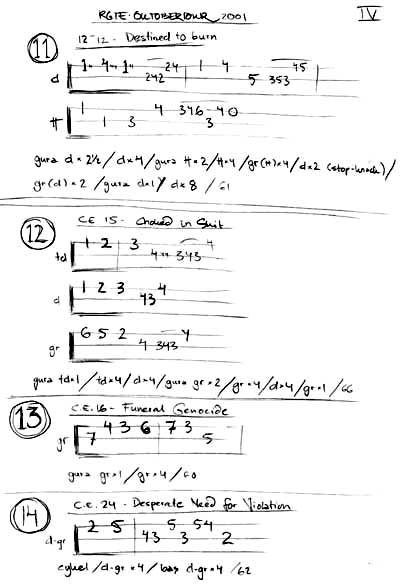 RGTE. OUKTOBERTOUR 2001 IV
11 12-12 - Destined to burn
1 4 1 24 1 4 45
d 242 5 353
1 4 346-40
# 1 3 3
gura d×2½/d×4/gura #×2/#×4/gr(#)×4/d×2 (stop-knock)/
gr(d)×2/gura d×1/d×8/61
12 C.E 15 - Choked in Shit
1 2 3 4
td 4 343
d 1 2 3 4
43
6 5 2 4
gr 4 343
gura td×1/td×4/d×4/gura gr×2/gr×4/d×4/gr×1/66
13 C.E.16 - Funeral Genocide
4 3 6 7 3
gr 7 5
gura gr×1/gr×4/60
14 C.E. 24 - Desperate Need for Violation
2 5 5 54
d-gr 43 3 2
cykel/d-gr×4/bas d-gr×4/62